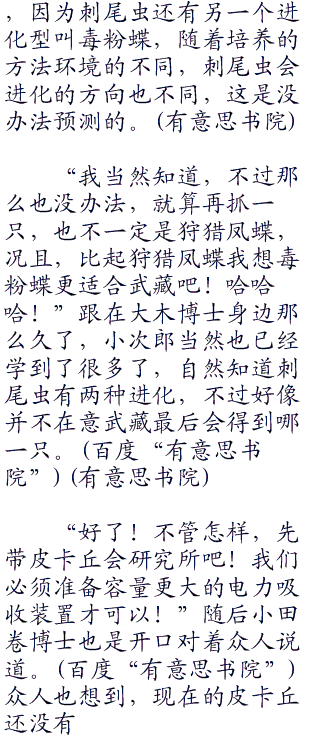 ，因为刺尾虫还有另一个进
化型叫毒粉蝶，随着培养的
方法环境的不同，刺尾虫会
进化的方向也不同，这是没
办法预测的。(有意思书院)
“我当然知道，不过那
么也没办法，就算再抓一
只，也不一定是狩猎凤蝶，
况且，比起狩猎凤蝶我想毒
粉蝶更适合武藏吧！哈哈
哈！”跟在大木博士身边那
么久了，小次郎当然也已经
学到了很多了，自然知道刺
尾虫有两种进化，不过好像
并不在意武藏最后会得到哪
一只。(百度“有意思书
院”)(有意思书院)
“好了！不管怎样，先
带皮卡丘会研究所吧！我们
必须准备容量更大的电力吸
收装置才可以！”随后小田
卷博士也是开口对着众人说
道。(百度“有意思书院”)
众人也想到，现在的皮卡丘
还没有